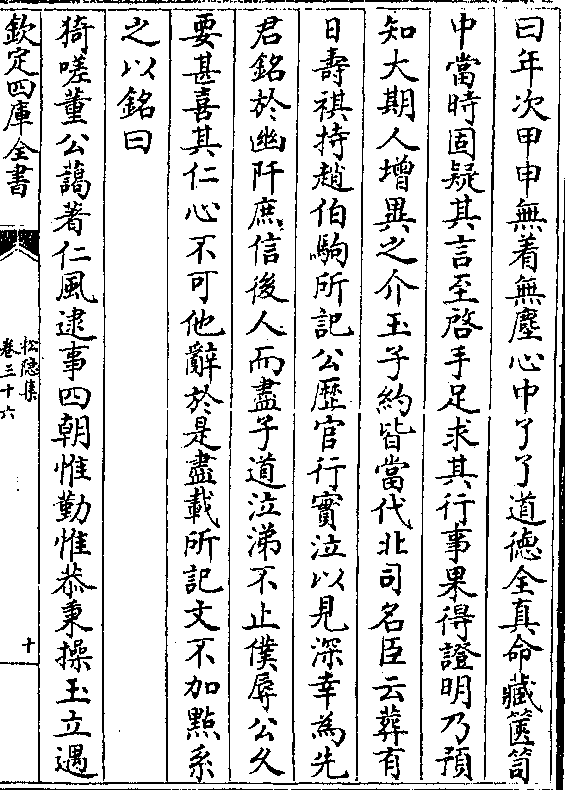 曰年次甲申無着無塵心中了了道德全真命藏篋笥
中當時固疑其言至啓手足求其行事果得證明乃預
知大期人增異之介玉子約皆當代北司名臣云葬有
日壽祺持趙伯駒所記公歴官行實泣以見深幸為先
君銘於幽阡庶信後人而盡子道泣涕不止僕辱公久
要甚喜其仁心不可他辭於是盡載所記文不加點系
之以銘曰
猗嗟董公藹著仁風逮事四朝惟勤惟恭秉操玉立遇
欽定四庫全書
松隱集
卷三十六
十